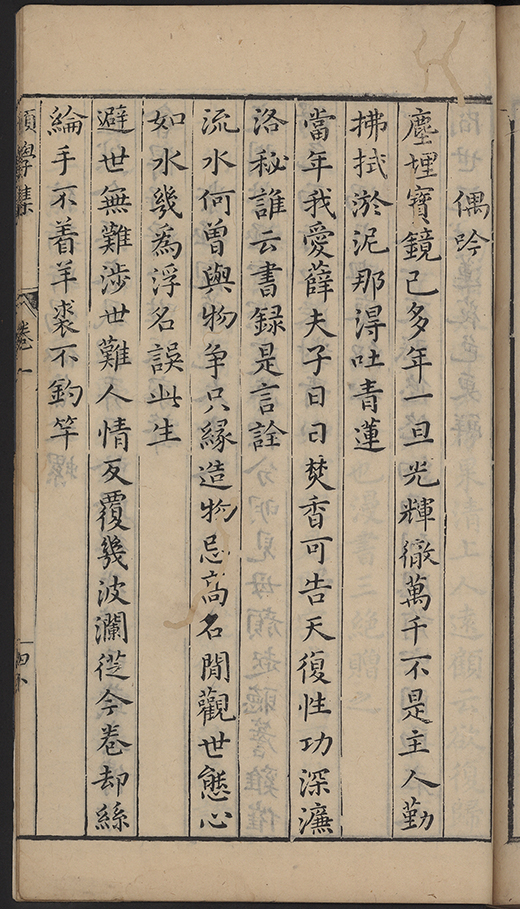 偶吟
塵埋寶鏡已多年一旦光輝徹萬千不是主人勤
拂拭淤泥那淂吐青蓮
當年我愛薛夫子日日焚香可告天復性功深濂
洛秘誰云書録是言詮
流水何曽與物争只緣造物忌高名閒觀世態心
如水幾爲浮名誤此生
避世無難涉世難人情反覆幾波瀾從今卷却絲
綸手不着羊裘不釣竿
學集
卷一